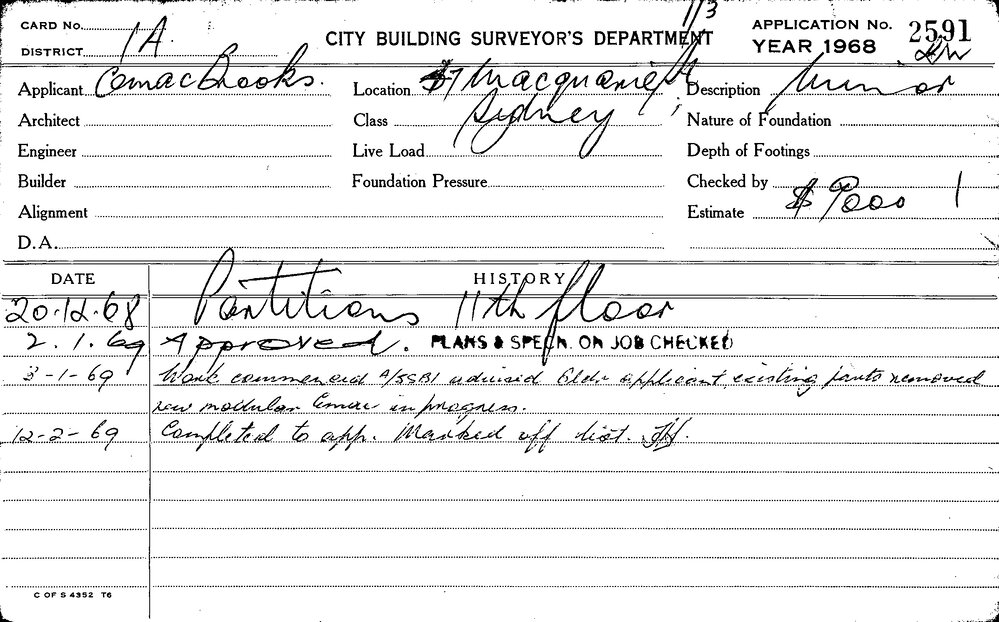 1/3
CARD No.
DISTRICT 1A
CITY BUILDING SURVEYOR'S DEPARTMENT
APPLICATION No. 2591
YEAR 1968
Applicant Comac Brooks.
Location 57 Macquarie St
Description Minor
Architect
Class Sydney
Nature of Foundation
Engineer
Live Load
Depth of Footings
Builder
Foundation Pressure
Checked by
Alignment
Estimate $ 9000
D.A.
DATE HISTORY
20.12.68 Partitions 11th floor
2.1.69 Approved. PLANS & SPECN. ON JOB CHECKED
3-1-69 Work commenced advised Bldr applicant, existing parts removed
new modular in progress.
12-2-69 Completed to app. Marked off list.
C OF S 4352 T6